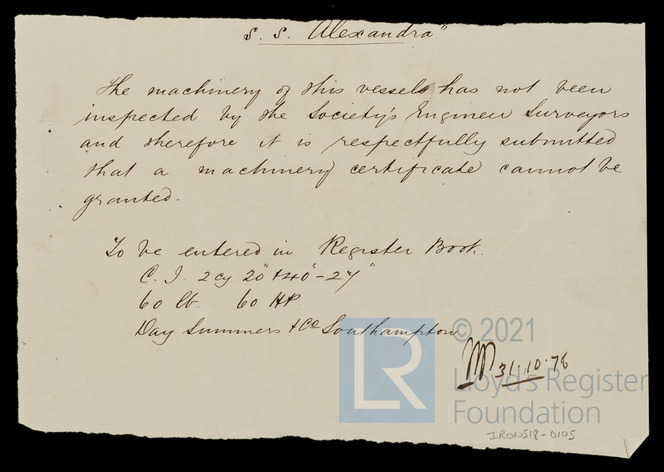 S. S. Alexandra"
The machinery of this vessels has not been
inspected by the Society's Engineer Surveyors
and therefore it is respectfully submitted
that a machinery certificate cannot be
granted.
To be entered in Register Book.
C. I. 2 Cy 20" & 40" - 27"
60 lb. 60 HP
Day Summers & Co Southampton
31.10.78
© 2021
LR
Lloyd's Register
Foundation
IRON518-0105